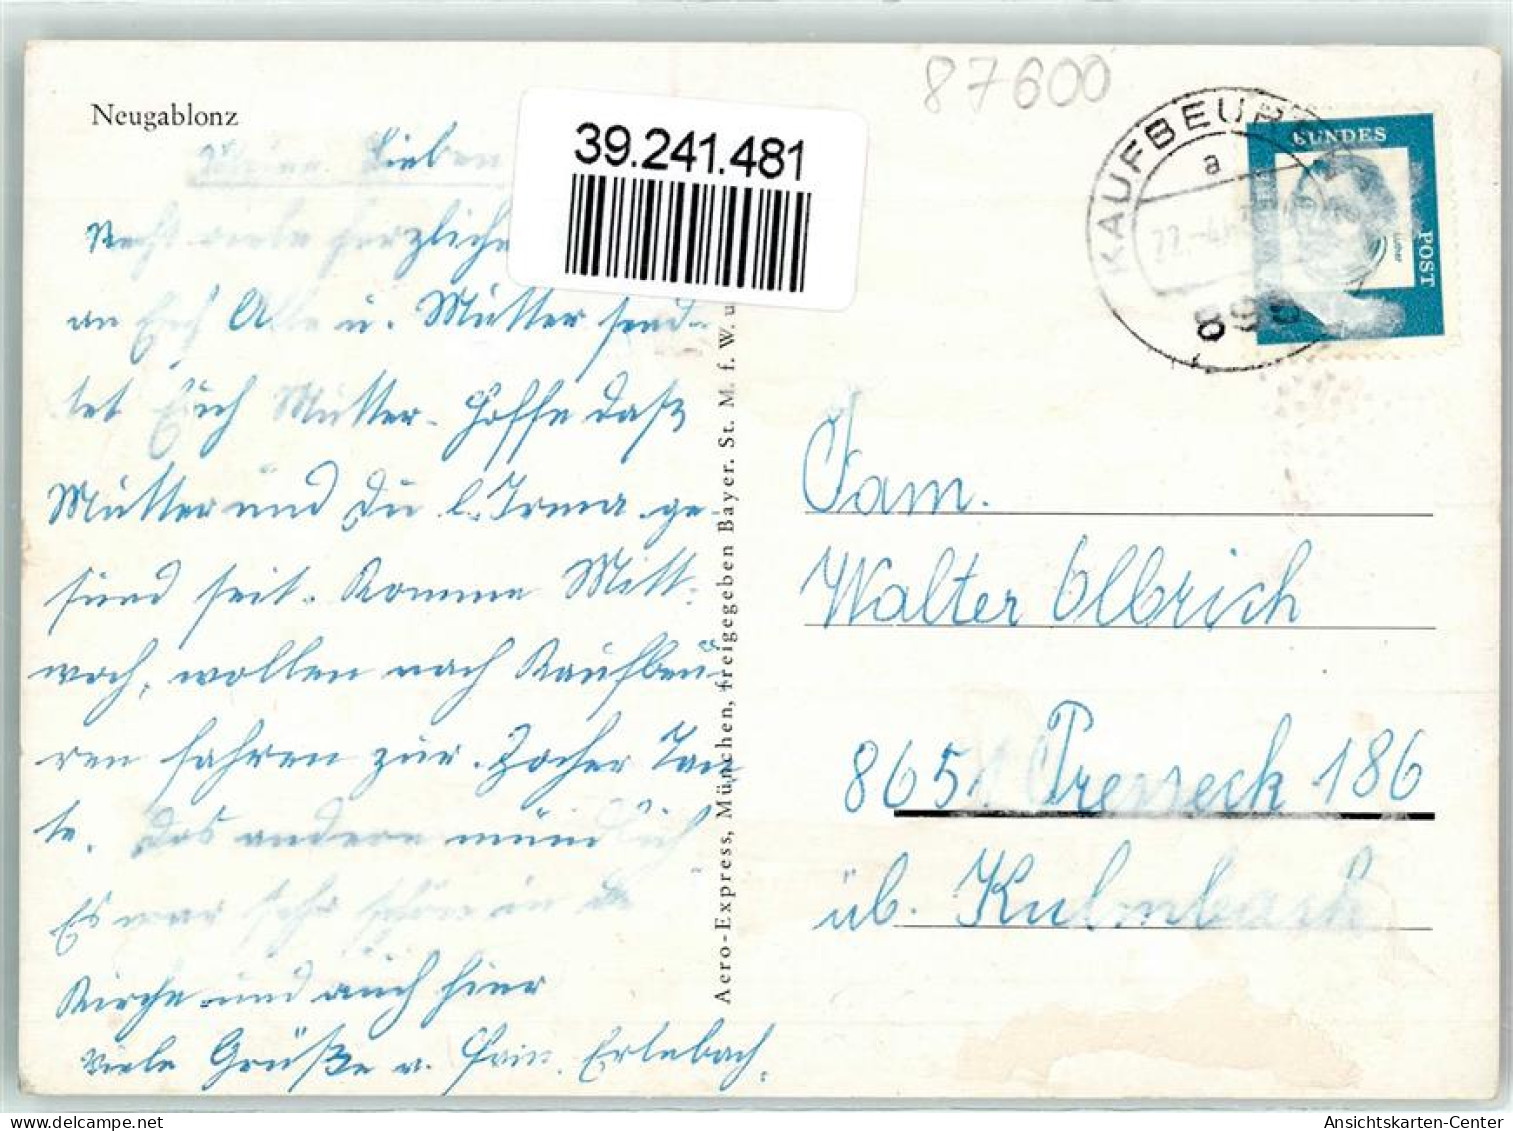 Neugablonz
87600
39.241.481
KAUFBEUR
a
22.-4.
BUNDES
POST
Luther
896
Meine Lieben
Recht viele herzliche
an Euch Alle u. Mutter send-
tet Euch Mutter. Hoffe daß
Mutter und Du l. Irma ge-
sund seit. Komme Mitt-
woch, wollen nach Kaufbeu-
ren fahren zur. Zocher Tan
te. Das andere mündlich
Es war sehr schön in de
Kirche und auch hier
viele Grüße v. Erlebach.
Aero-Express, München, freigegeben Bayer. St. M. f. W. u
Fam.
Walter Olbrich
8651 Presseck 186
üb. Kulmbach
delcampe.net
Ansichtskarten-Center